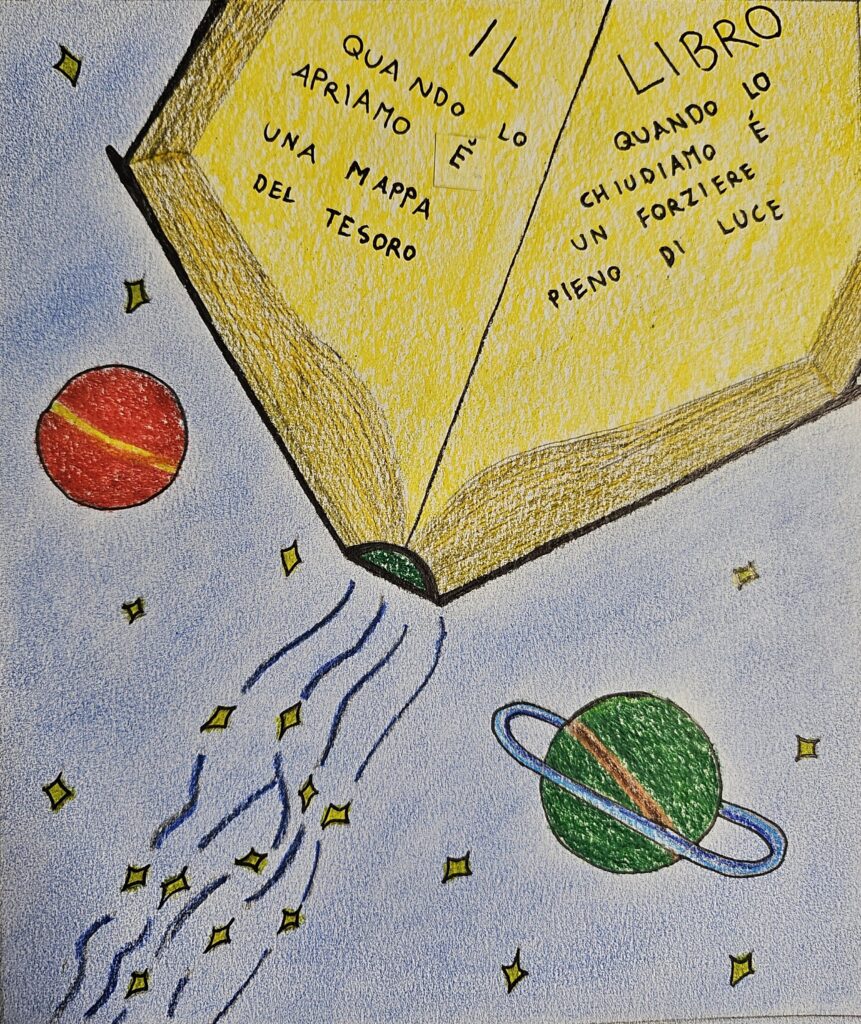 IL LIBRO
QUANDO LO
APRIAMO Ĕ
UNA MAPPA
DEL TESORO
QUANDO LO
CHIUDIAMO É
UN FORZIERE
PIENO DI LUCE